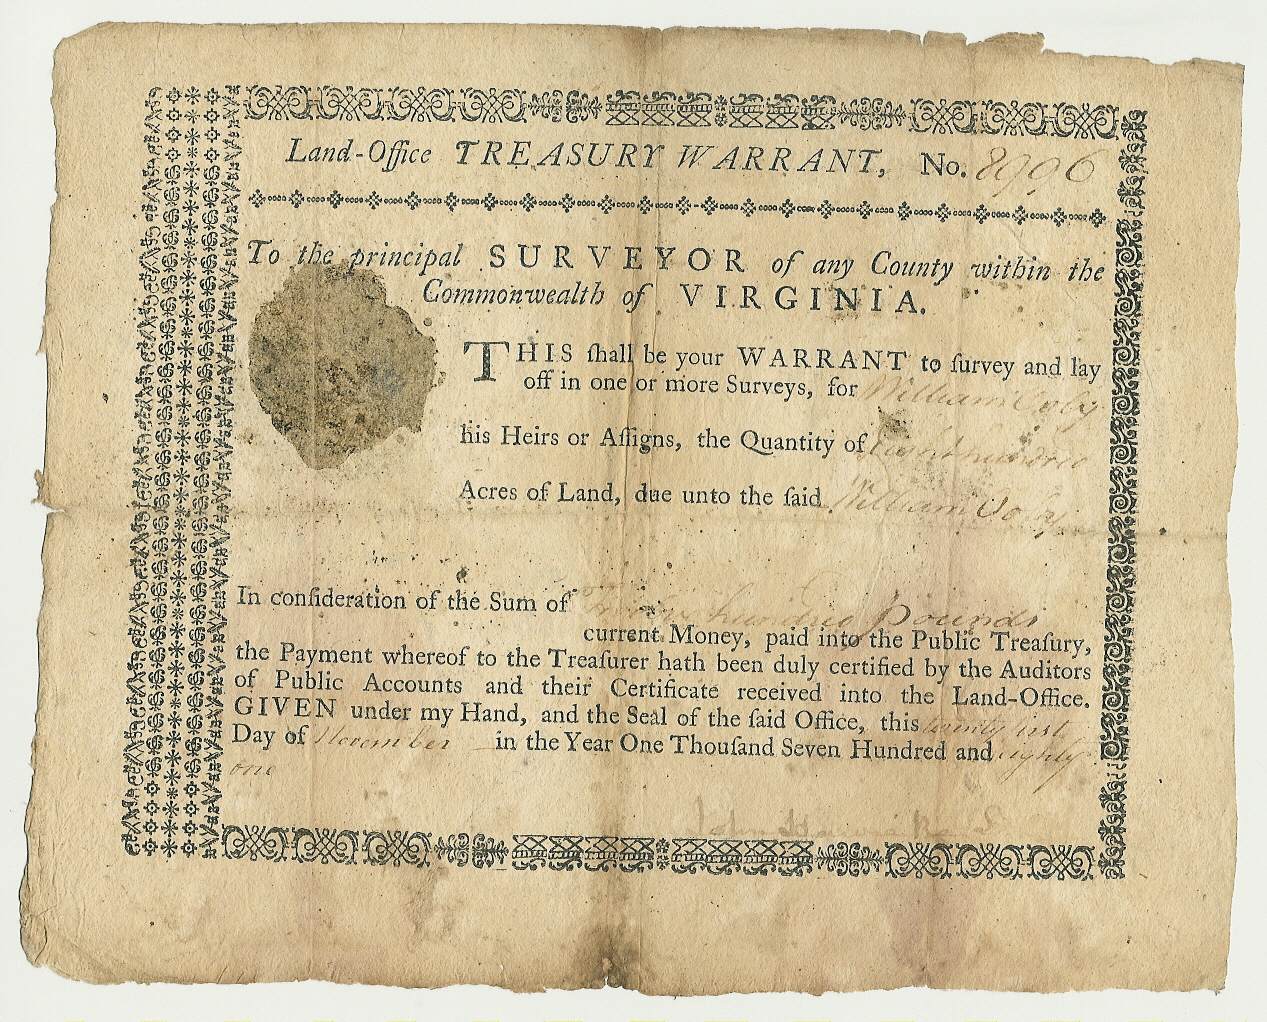 Land-Office TREASURY WARRANT, No. 8996
To the principal SURVEYOR of any County within the
Commonwealth of VIRGINIA.
THIS ſhall be your WARRANT to ſurvey and lay
off in one or more Surveys, for William
his Heirs or Aſſigns, the Quantity of hundred
Acres of Land, due unto the ſaid William
In conſideration of the Sum of hundred Pounds
current Money, paid into the Public Treaſury,
the Payment whereof to the Treaſurer hath been duly certified by the Auditors
of Public Accounts and their Certificate received into the Land-Office.
GIVEN under my Hand, and the Seal of the ſaid Office, this twenty first
Day of November in the Year One Thouſand Seven Hundred and eighty
one